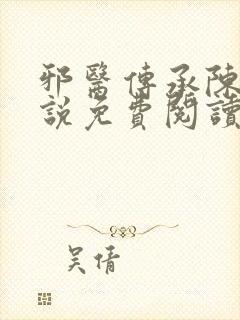 邪醫傳承陳
說免費閱讀
吴倩